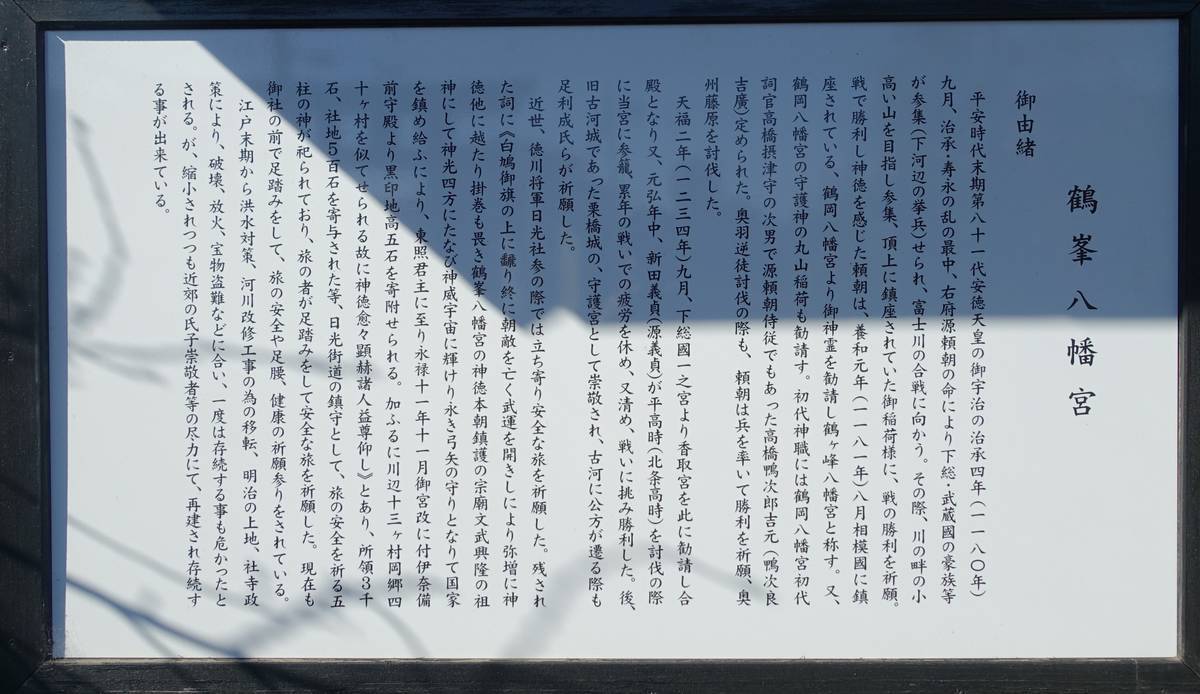 鶴峯八幡宮
御由緒
平安時代末期第八十一代安徳天皇の御宇治の治承四年(一一八〇年)
九月、治承・寿永の乱の最中、右府源頼朝の命により下総・武蔵國の豪族等
が参集(下河辺の挙兵)せられ、富士川の合戦に向かう。その際、川の畔の小
高い山を目指し参集、頂上に鎮座されていた御稲荷様に、戦の勝利を祈願。
戦で勝利し神徳を感じた頼朝は、養和元年(一一八一年)八月相模國に鎮
座されている、鶴岡八幡宮より御神霊を勧請し鶴ヶ峰八幡宮と称す。又、
鶴岡八幡宮の守護神の丸山稲荷も勧請す。初代神職には鶴岡八幡宮初代
詞官高橋摂津守の次男で源頼朝侍従でもあった高橋鴨次郎吉元(鴨次良
吉廣)定められた。奥羽逆徒討伐の際も、頼朝は兵を率いて勝利を祈願、奥
州藤原を討伐した。
天福二年(一二三四年)九月、下総國一之宮より香取宮を此に勧請し合
殿となり又、元弘年中、新田義貞(源義貞)が平高時(北条高時)を討伐の際
に当宮に参籠、累年の戦いでの疲労を休め、又清め、戦いに挑み勝利した。後、
旧古河城であった栗橋城の、守護宮として崇敬され、古河に公方が遷る際も
足利成氏らが祈願した。
近世、徳川将軍日光社参の際では立ち寄り安全な旅を祈願した。残され
た詞に《白鳩御旗の上に飜り終に朝敵を亡く武運を開きしにより弥増に神
徳他に越たり掛巻も畏き鶴峯八幡宮の神徳本朝鎮護の宗廟文武興隆の祖
神にして神光四方にたなび神威宇宙に輝けり永き弓矢の守りとなりて国家
を鎮め給ふにより、東照君主に至り永禄十一年十一月御宮改に付伊奈備
前守殿より黒印地高五石を寄附せられる。加ふるに川辺十三ヶ村岡郷四
十ヶ村を似てせられる故に神徳愈々顕赫諸人益尊仰し》とあり、所領3千
石、社地5百石を寄与された等、日光街道の鎮守として、旅の安全を祈る五
柱の神が祀られており、旅の者が足踏みをして安全な旅を祈願した。現在も
御社の前で足踏みをして、旅の安全や足腰、健康の祈願参りをされている。
江戸末期から洪水対策、河川改修工事の為の移転、明治の上地、社寺政
策により、破壊、放火、宝物盗難などに合い、一度は存続する事も危かったと
される。が、縮小されつつも近郊の氏子崇敬者等の尽力にて、再建され存続す
る事が出来ている。